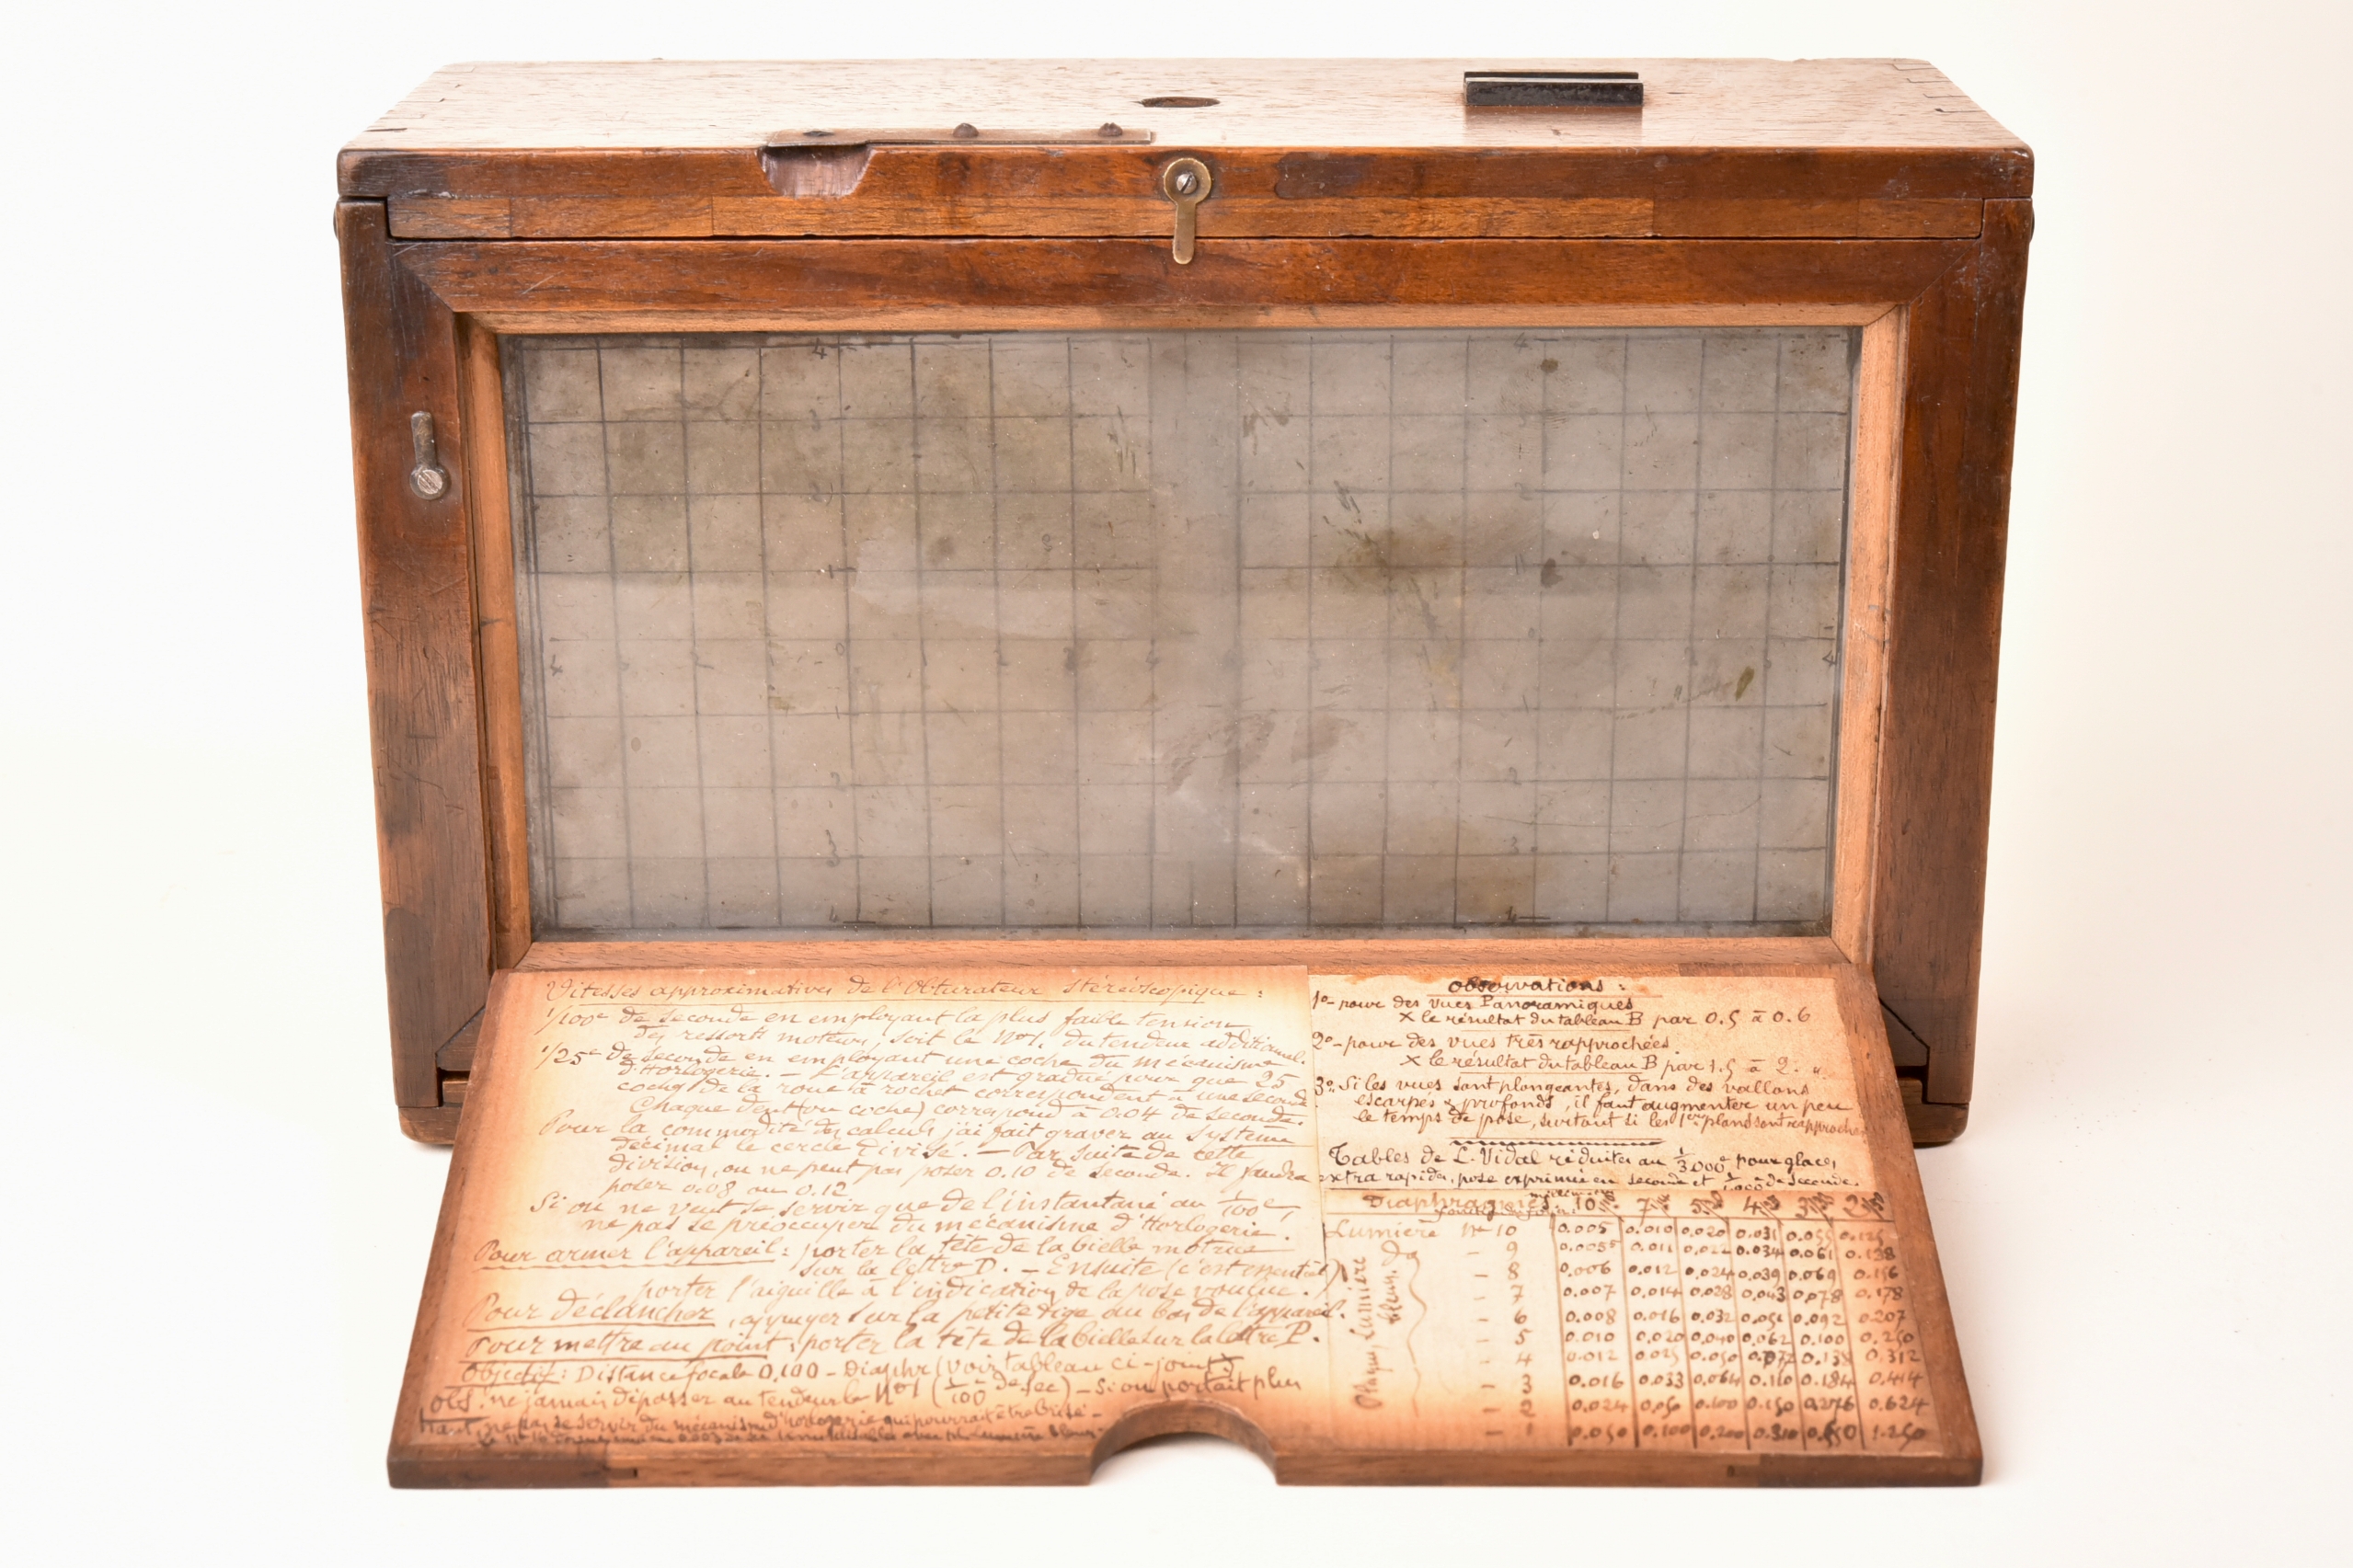 Vitesses approximatives de l'Obturateur stéréoscopique :
1/100e de seconde en employant la plus faible tension
des ressorts moteurs, soit le No 1, du tendeur additionnel.
1/25e de seconde en employant une coche du mécanisme
d'Horlogerie. — L'appareil est gradué pour que 25
coches de la roue à rochet correspondent à une seconde
Chaque dent (ou coche) correspond à 0.04 de seconde.
Pour la commodité du calcul j'ai fait graver au système
décimal le cercle divisé. — Par suite de cette
division, on ne peut pas poser 0.10 de seconde. Il faudra
poser 0.08 ou 0.12
Si on ne veut se servir que de l'instantané au 1/100e,
ne pas se préoccuper du mécanisme d'Horlogerie.
Pour armer l'appareil : porter la tête de la bielle motrice
sur la lettre D. — Ensuite (c'est essentiel)
porter l'aiguille à l'indication de la pose voulue.
Pour déclancher, appuyer sur la petite tige au bas de l'appareil.
Pour mettre au point, porter la tête de la bielle sur la lettre P.
Objectif : Distance focale 0,100 — Diaphr (voir tableau ci-joint)
obs. ne jamais dépasser au tendeur le No 1 (1/100e de sec) — Si on portait plus
haut, ne pas se servir du mécanisme d'horlogerie qui pourrait être brisé —
observations :
1o - pour des vues Panoramiques
X le résultat du tableau B par 0.5 à 0.6
2o - pour des vues très rapprochées
X le résultat du tableau B par 1.5 à 2. "
3o Si les vues sont plongeantes, dans des vallons
escarpés & profonds, il faut augmenter un peu
le temps de pose, surtout si les 1ers plans sont rapprochés
Tables de L. Vidal réduites au 1/3000e pour glaces
extra rapides, pose exprimée en seconde et 1/1000e de seconde.
Diaphragmes 10 7 5 4 3 2
Lumière No 10 0.005 0.010 0.020 0.031 0.055 0.125
do - 9 0.0055 0.011 0.022 0.034 0.061 0.138
- 8 0.006 0.012 0.024 0.039 0.069 0.156
- 7 0.007 0.014 0.028 0.043 0.078 0.178
- 6 0.008 0.016 0.032 0.051 0.092 0.207
- 5 0.010 0.020 0.040 0.062 0.100 0.250
- 4 0.012 0.025 0.050 0.077 0.138 0.312
- 3 0.016 0.033 0.064 0.110 0.184 0.414
- 2 0.024 0.050 0.100 0.150 0.276 0.624
- 1 0.050 0.100 0.200 0.310 1.250
Plaques Lumière
bleues.
4
4
3
2
1
0
4
3
4
4
1
2
2
3
3
4
4